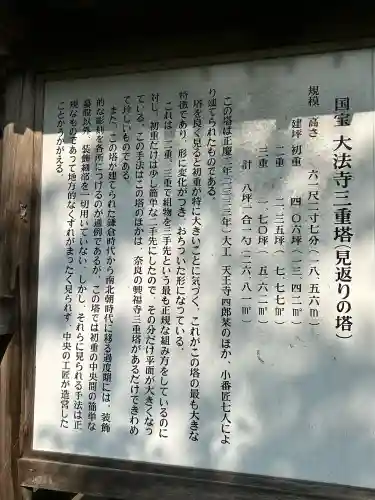 国宝 大法寺三重塔(見返りの塔)
規模 高さ 六一尺一寸七分(一八.五六m)
建坪 初重 四.〇六坪(一三.四二㎡)
二重 二.三五坪(七.七七㎡)
三重 一.七〇坪(五.六二㎡)
計 八坪一合一勺(二六.八一㎡)
この塔は正慶二年(一三三三年)大工 天王寺四郎某のほか、小番匠七人によ
り建てられたものである。
塔を良く見ると初重が特に大きいことに気づく。これがこの塔の最も大きな
特徴であり、形に変化がつき、おちついた形になっている。
これは、二重、三重で組物を三手先という最も正規な組み方をしているのに
対し、初重だけは少し簡単な二手先にしたので、その分だけ平面が大きくなっ
ている。この手法はこの塔のほかは、奈良の興福寺三重塔があるだけできわめ
て珍しいものである。
また、この塔が建てられた鎌倉時代から南北朝時代に移る過度期には、装飾
的な彫刻を各所につけるのが通例であるが、この塔では初重の中央間の簡単な
蟇股以外、装飾細部を一切用いていない。しかし、それらに見られる手法は正
規なものであって地方的なくずれがまったく見られず、中央の工匠が造営した
ことがうかがえる。